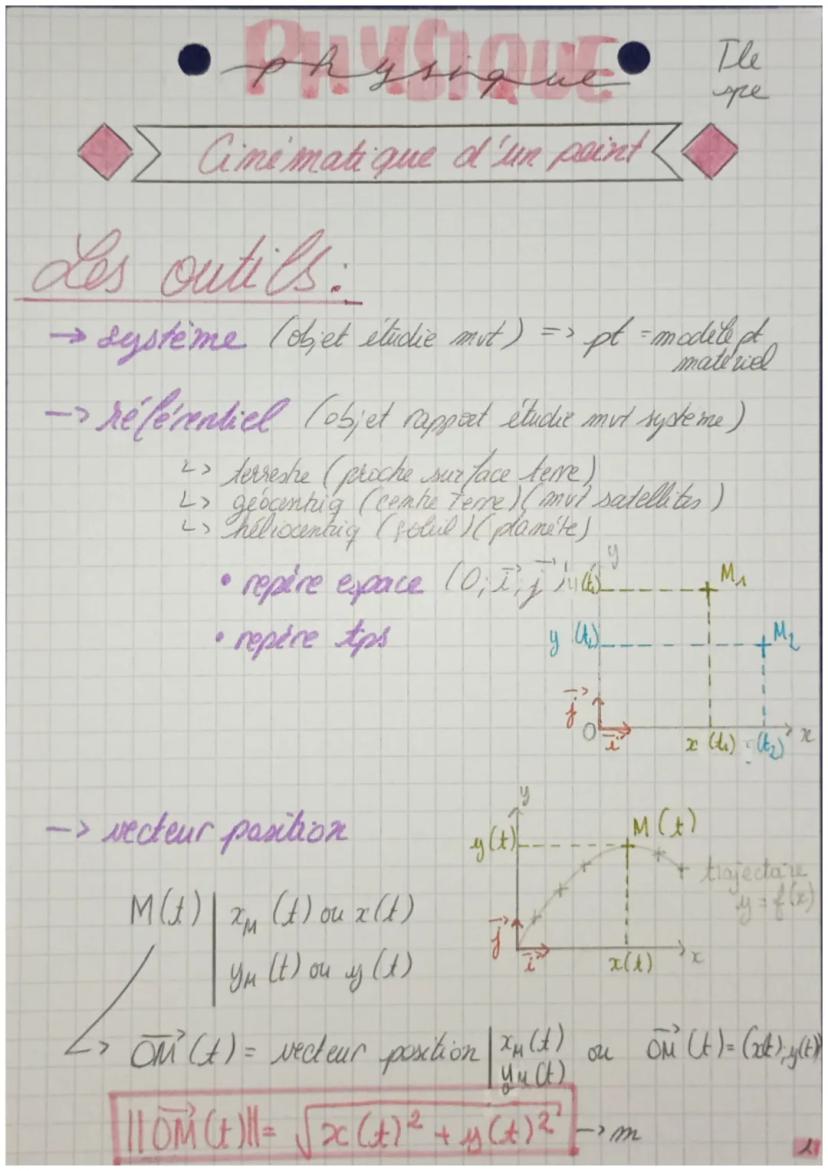 PHYSIQUE
physique
Tle
spe
Cinématique d'un point
Les outils :
→ système (objet étudie mvt) => pt = modèle pt
matériel
→ référentiel (objet rapport étudie mvt système)
↳ terrestre (proche surface terre)
↳ géocentriq (centre terre) (mvt satellites)
↳ héliocentriq (soleil) (planète)
y
• repère espace (O; i⃗, j⃗) y(t₁) M₁
• repère tps y (t₂) M₂
j⃗
O i⃗ x (t₁) (t₂) x
y
→ vecteur position y(t) M(t)
trajectoire
y = f(x)
M(t) | x_M (t) ou x(t)
y_M (t) ou y(t)
j⃗ i⃗ x(t) x
↳ OM⃗ (t) = vecteur position | x_M(t) ou OM⃗ (t) = (x(t); y(t))
y_M(t)
||OM⃗(t)|| = √x(t)² + y(t)² → m
1